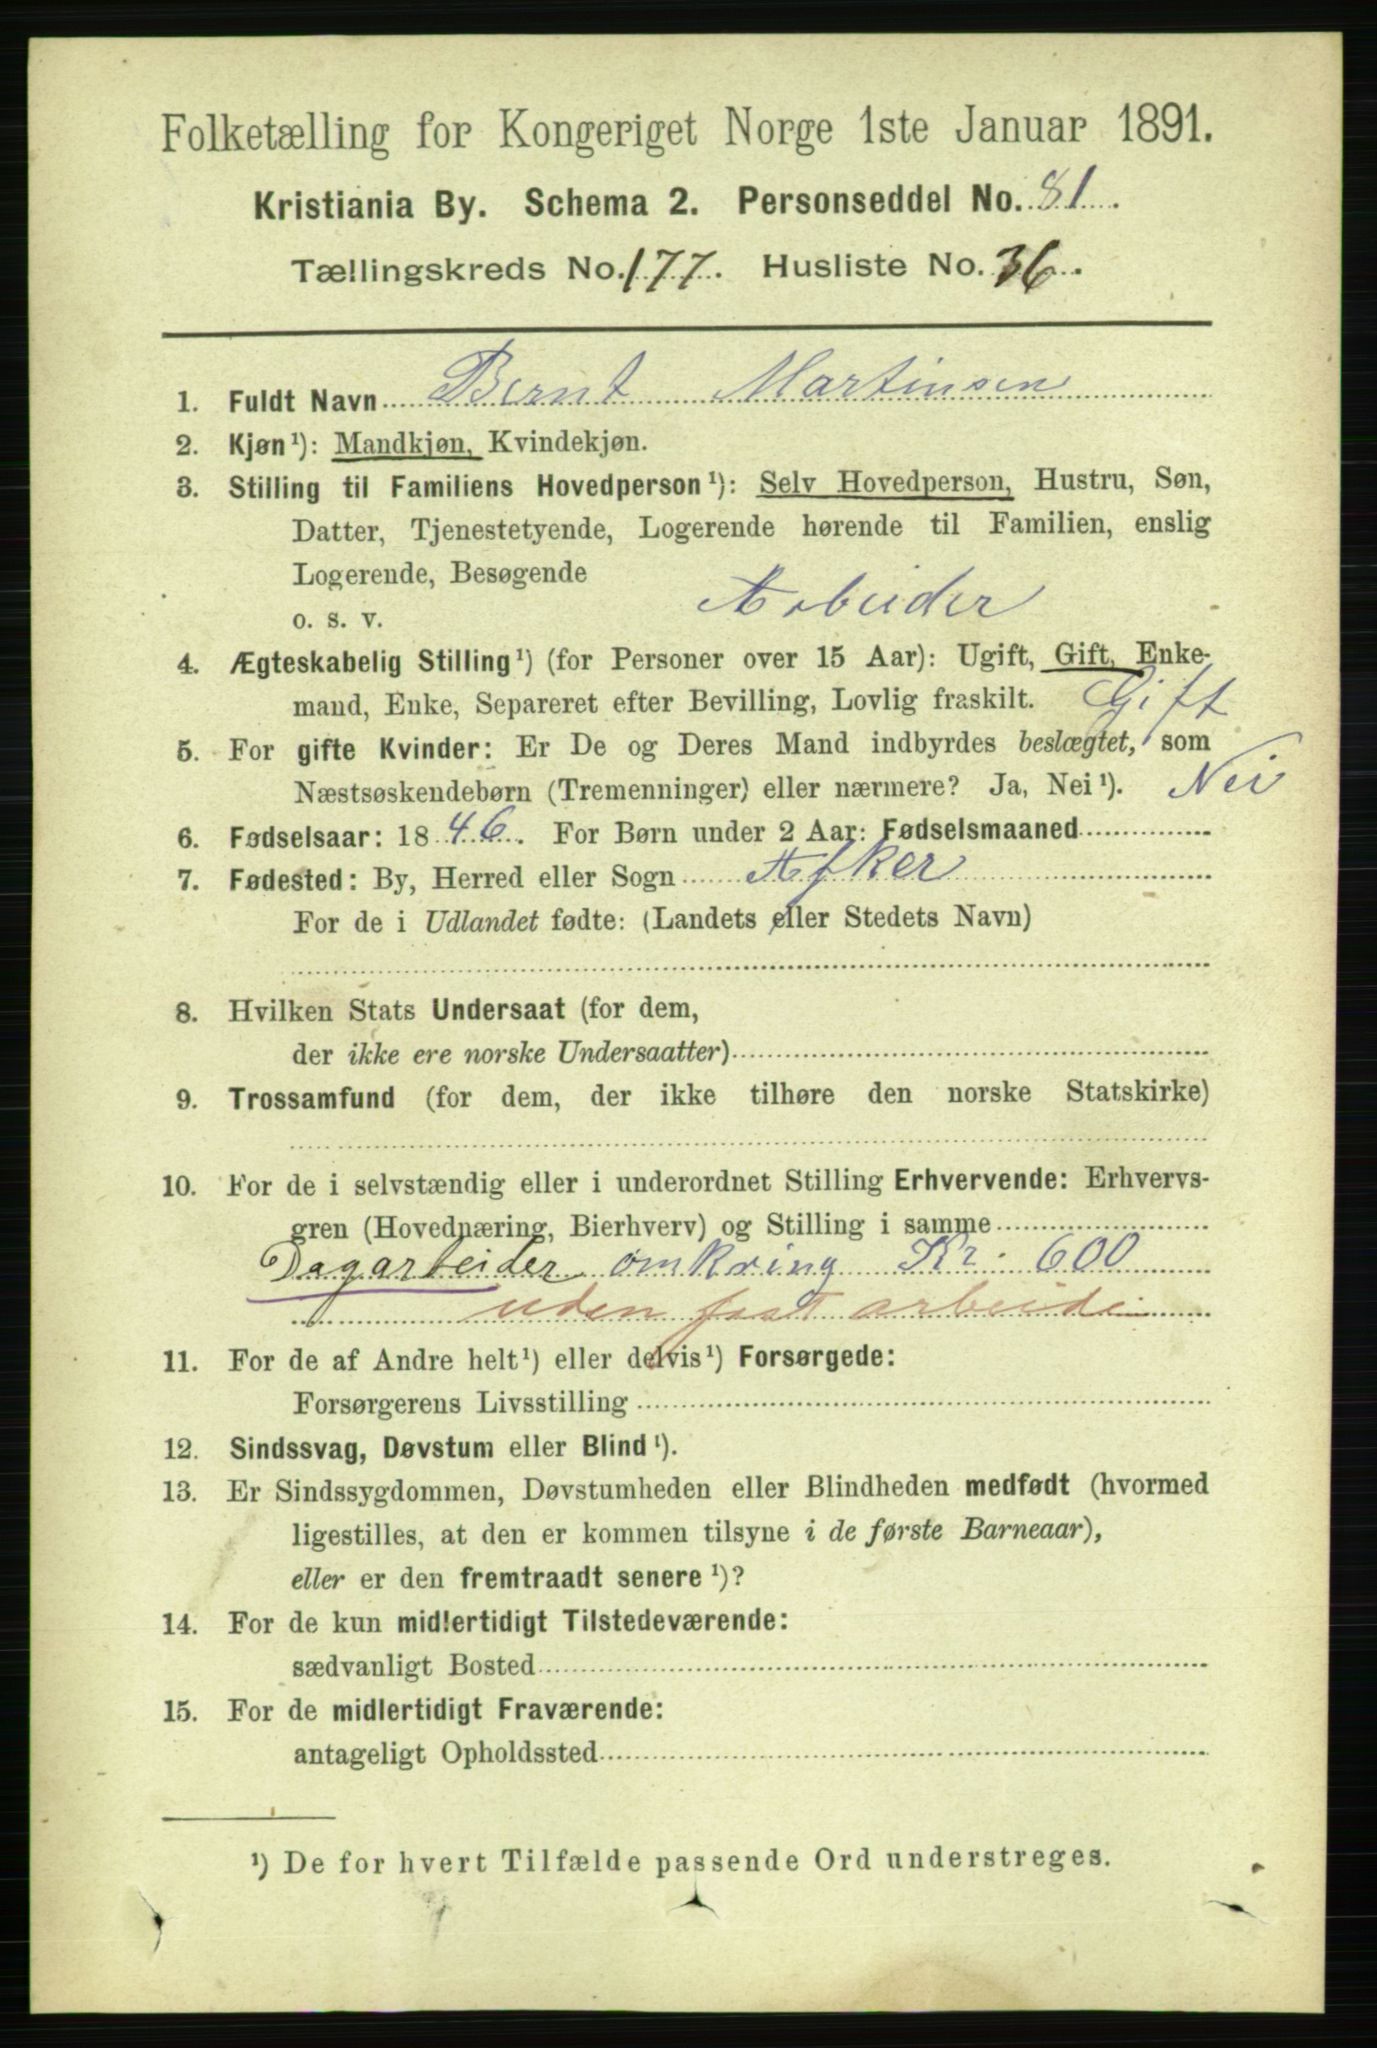 Folketælling for Kongeriget Norge 1ste Januar 1891.
Kristiania By. Schema 2. Personseddel No. 81.
Tællingskreds No. 177. Husliste No. 36.
1. Fuldt Navn Bernt Martinsen
2. Kjøn¹): Mandkjøn, Kvindekjøn.
3. Stilling til Familiens Hovedperson¹): Selv Hovedperson, Hustru, Søn,
Datter, Tjenestetyende, Logerende hørende til Familien, enslig
Logerende, Besøgende
o. s. v. Arbeider
4. Ægteskabelig Stilling¹) (for Personer over 15 Aar): Ugift, Gift, Enke-
mand, Enke, Separeret efter Bevilling, Lovlig fraskilt. Gift
5. For gifte Kvinder: Er De og Deres Mand indbyrdes beslægtet, som
Næstsøskendebørn (Tremenninger) eller nærmere? Ja, Nei¹). Nei
6. Fødselsaar: 1846. For Børn under 2 Aar: Fødselsmaaned
7. Fødested: By, Herred eller Sogn Afker
For de i Udlandet fødte: (Landets eller Stedets Navn)
8. Hvilken Stats Undersaat (for dem,
der ikke ere norske Undersaatter)
9. Trossamfund (for dem, der ikke tilhøre den norske Statskirke)
10. For de i selvstændig eller i underordnet Stilling Erhvervende: Erhvervs-
gren (Hovednæring, Bierhverv) og Stilling i samme
Dagarbeider omkring Kr. 600
uden fast arbeide
11. For de af Andre helt¹) eller delvis¹) Forsørgede:
Forsørgerens Livsstilling
12. Sindssvag, Døvstum eller Blind¹).
13. Er Sindssygdommen, Døvstumheden eller Blindheden medfødt (hvormed
ligestilles, at den er kommen tilsyne i de første Barneaar),
eller er den fremtraadt senere¹)?
14. For de kun midlertidigt Tilstedeværende:
sædvanligt Bosted
15. For de midlertidigt Fraværende:
antageligt Opholdssted
¹) De for hvert Tilfælde passende Ord understreges.